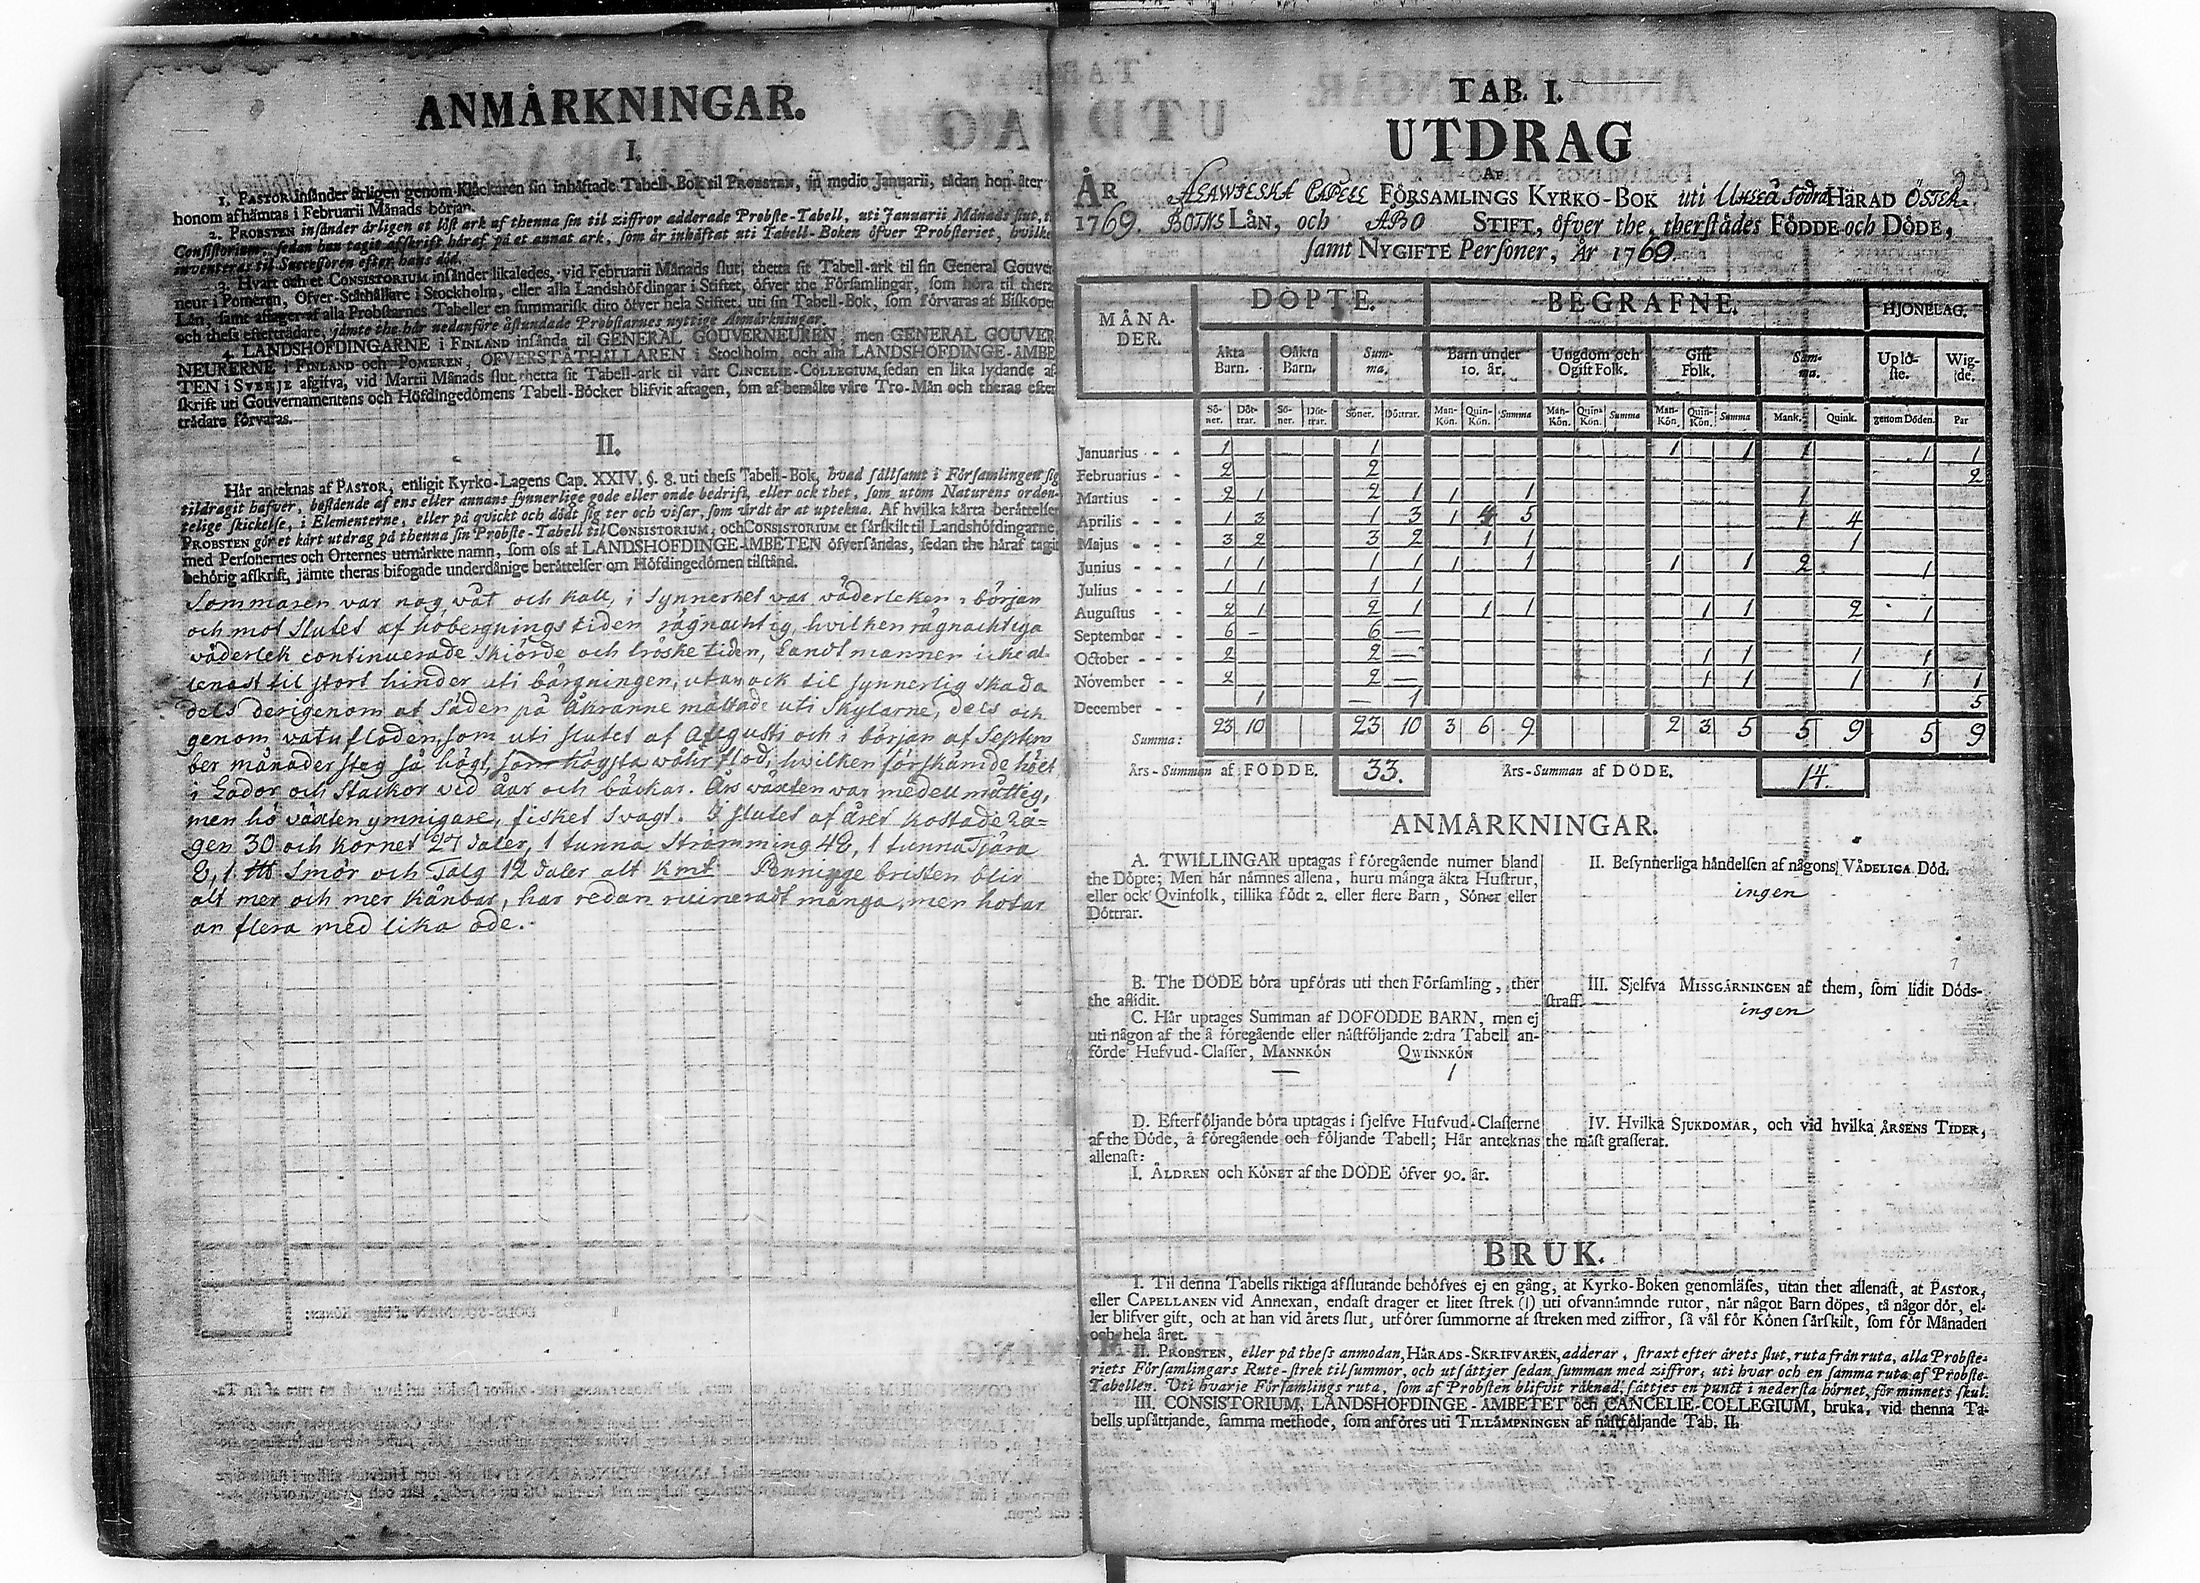 ANMÄRKNINGAR.
I.
1. PASTOR insänder årligen genom Klåckaren sin inhäftade Tabell-Bok til PROBSTEN, in medio Januarii, sådan hon åter
honom afhämtas i Februarii Månads början.
2. PROBSTEN insänder årligen et löst ark af thenna sin til ziffror adderade Probste-Tabell, uti Januarii Månads slut, t
Consistorium, sedan han tagit afskrift häraf på et annat ark, som är inhäftat uti Tabell-Boken öfver Probsteriet, hvilke
inventeras til Successoren efter hans död.
3. Hvart och et CONSISTORIUM insänder likaledes, vid Februarii Månads slut, thetta sit Tabell-ark til sin General Gouver
neur i Pomeren, Öfver-Ståthållare i Stockholm, eller alla Landshöfdingar i Stiftet, öfver the Församlingar, som höra til thera
Län, samt aftager af alla Probstarnes Tabeller en summarisk dito öfver hela Stiftet, uti sin Tabell-Bok, som förvaras af Biskopen
och thess efterträdare, jämte the här nedanföre åstundade Probstarnes nyttige Anmärkningar.
4. LANDSHÖFDINGARNE i FINLAND insända til GENERAL GOUVERNEUREN, men GENERAL GOUVER
NEURERNE i FINLAND och POMEREN, ÖFVERSTÅTHÅLLAREN i Stockholm, och alla LANDSHÖFDINGE-ÄMBE
TEN i SVERJE afgifva, vid Martii Månads slut thetta sit Tabell-ark til vårt CANCELIE-COLLEGIUM, sedan en lika lydande af
skrift uti Gouvernamentens och Höfdingedömens Tabell-Böcker blifvit aftagen, som af bemälte våre Tro-Män och theras efter
trädare förvaras.
II.
Här anteknas af PASTOR, enligit Kyrko-Lagens Cap. XXIV. §. 8. uti thess Tabell-Bok, hvad sällsamt i Församlingen sig
tildragit hafver, bestående af ens eller annans synnerlige gode eller onde bedrift, eller ock thet, som utom Naturens orden-
telige skickelse, i Elementerne, eller på qvickt och dödt sig ter och visar, som värdt är at uptekna. Af hvilka kårta berättelser
PROBSTEN gör et kårt utdrag på thenna sin Probste-Tabell til CONSISTORIUM, och CONSISTORIUM et särskilt til Landshöfdingarne,
med Personernes och Orternes utmärkte namn, som oss af LANDSHÖFDINGE-ÄMBETEN öfversändas, sedan the häraf tagit
behörig afskrift, jämte theras bifogade underdånige berättelser om Höfdingedömen tilstånd.
Sommaren var nog våt och kall, i synnerhet var väderleken i början
och mot slutet af höbergnings tiden rägnachtig, hvilken rägnachtiga
väderlek continuerade skiörde och tröske tiden, Landtmannen icke al-
lenast til stort hinder uti bärgningen, utan ock til synnerlig skada
dels derigenom at Säden på åkranne mältade uti Skylarne, dels och
genom vatufloden, som uti slutet af Augusti och i början af Septem
ber månader steg så högt, som högsta vårflod, hvilken förskämde höet
i Lador och Stackor vid åar och bäckar. Årsväxten var medelmåttig,
men höväxten ymnigare, fisket svagt. I slutet af året kostade Rå=
gen 30 och Kornet 24 daler, 1 tunna Strömming 48, 1 tunna Tjära
8, 1 ℔ Smör och Talg 12 daler alt Kmt Penninge bristen blir
alt mer och mer kånbar, har redan ruineradt många, men hotar
än flera med lika öde.
TAB. I.
UTDRAG
AF
ÅR CAPELL FÖRSAMLINGS KYRKO-BOK uti Uhleå Södra HÄRAD ÖSTER-
1769. BOTNS LÄN, och ÅBO STIFT, öfver the, therstädes FÖDDE och DÖDE,
samt NYGIFTE Personer, År 1769.
MÅNA-DER. DÖPTE. BEGRAFNE. HJONELAG.
Äkta Barn. Oäkta Barn. Sum-ma. Barn under 10. år. Ungdom och Ogift Folk. Gift Folk. Sum-ma. Uplö-ste. Wig-de.
Sö-ner. Döt-trar. Sö-ner. Döt-trar. Söner. Döttrar. Man-Kön. Quin-Kön. Summa Man-Kön. Quin-Kön. Summa Man-Kön. Quin-Kön. Summa Mank. Quink. genom Döden. Par
Januarius - - 1 1 1 1 1 1 1
Februarius - - 2 2 2
Martius - - 2 1 2 1 1 1 1
Aprilis - - - 1 3 1 3 1 4 5 1 4
Majus - - - 3 2 3 2 1 1 1
Junius - - - 1 1 1 1 1 1 1 1 2 1
Julius - - - 1 1 1 1
Augustus - - 2 1 2 1 1 1 1 1 2 1
September - - 6 - 6 —
October - - - 2 2 — 1 1 1 1
November - - 2 2 — 1 1 1 1 1
December - - 1 — 1 5
Summa: 23 10 23 10 3 6 9 2 3 5 5 9 5 9
Års-Summan af FÖDDE. 33. Års-Summan af DÖDE. 14.
ANMÄRKNINGAR.
A. TWILLINGAR uptagas i föregående numer bland
the Döpte; Men här nämnes allena, huru många äkta Hustrur,
eller ock Qvinfolk, tillika födt 2. eller flere Barn, Söner eller
Döttrar.
B. The DÖDE böra upföras uti then Församling, ther
the aflidit.
C. Här uptages Summan af DÖFÖDDE BARN, men ej
uti någon af the å föregående eller nästföljande 2:dra Tabell an-
förde Hufvud-Classer, MANNKÖN QWINNKÖN
— 1
D. Efterföljande böra uptagas i sjelfve Hufvud-Classerne
af the Döde, å föregående och följande Tabell; Här anteknas
allenast:
I. ÅLDREN och KÖNET af the DÖDE öfver 90. år.
II. Besynnerliga händelsen af någons VÅDELIGA Död.
ingen
III. Sjelfva MISSGÄRNINGEN af them, som lidit Döds-
straff.
ingen
IV. Hvilka SJUKDOMAR, och vid hvilka ÅRSENS TIDER,
the mäst grasserat.
BRUK.
I. Til denna Tabells riktiga afslutande behöfves ej en gång, at Kyrko-Boken genomläses, utan thet allenast, at PASTOR,
eller CAPELLANEN vid Annexan, endast drager et litet strek (|) uti ofvannämnde rutor, när något Barn döpes, tå någor dör, el-
ler blifver gift, och at han vid årets slut, utförer summorne af streken med ziffror, så väl för Könen särskilt, som för Månaden
och hela året.
II. PROBSTEN, eller på thess anmodan, HÄRADS-SKRIFVAREN, adderar, straxt efter årets slut, ruta från ruta, alla Probste-
riets Församlingars Rute-strek til summor, och utsättjer sedan summan med ziffror, uti hvar och en samma ruta af Probste-
Tabellen. Uti hvarje Församlings ruta, som af Probsten blifvit räknad, sättjes en punct i nedersta hörnet, för minnets skul.
III. CONSISTORIUM, LANDSHÖFDINGE-ÄMBETET och CANCELIE-COLLEGIUM, bruka, vid thenna Ta-
bells upsättjande, samma methode, som anföres uti TILLÄMPNINGEN af nästföljande Tab. II.